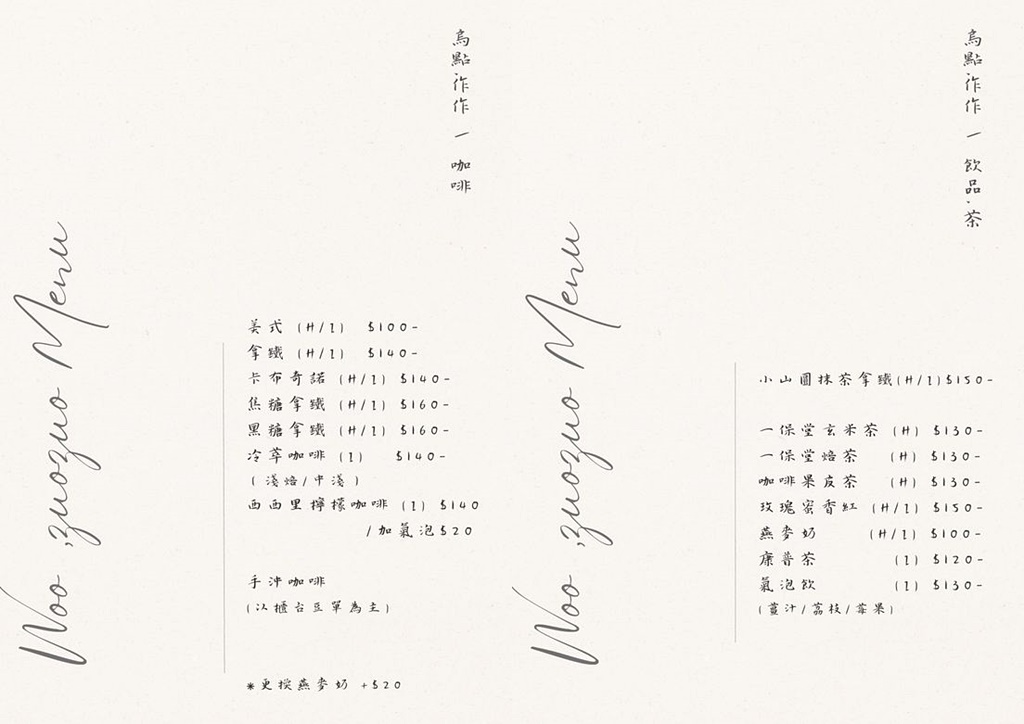 烏點作作 - 咖啡
Woo ;zuozuo Menu
美式 (H/I) $100-
拿鐵 (H/I) $140-
卡布奇諾 (H/I) $140-
焦糖拿鐵 (H/I) $160-
黑糖拿鐵 (H/I) $160-
冷萃咖啡 (I) $140-
( 淺焙/中淺 )
西西里檸檬咖啡 (I) $140
/加氣泡$20
手沖咖啡
(以櫃台豆單為主)
*更換燕麥奶 +$20
烏點作作 - 飲品.茶
Woo ;zuozuo Menu
小山園抹茶拿鐵(H/I)$150-
一保堂玄米茶 (H) $130-
一保堂焙茶 (H) $130-
咖啡果皮茶 (H) $130-
玫瑰蜜香紅 (H/I) $150-
燕麥奶 (H/I) $100-
康普茶 (I) $120-
氣泡飲 (I) $130-
(薑汁/荔枝/莓果)